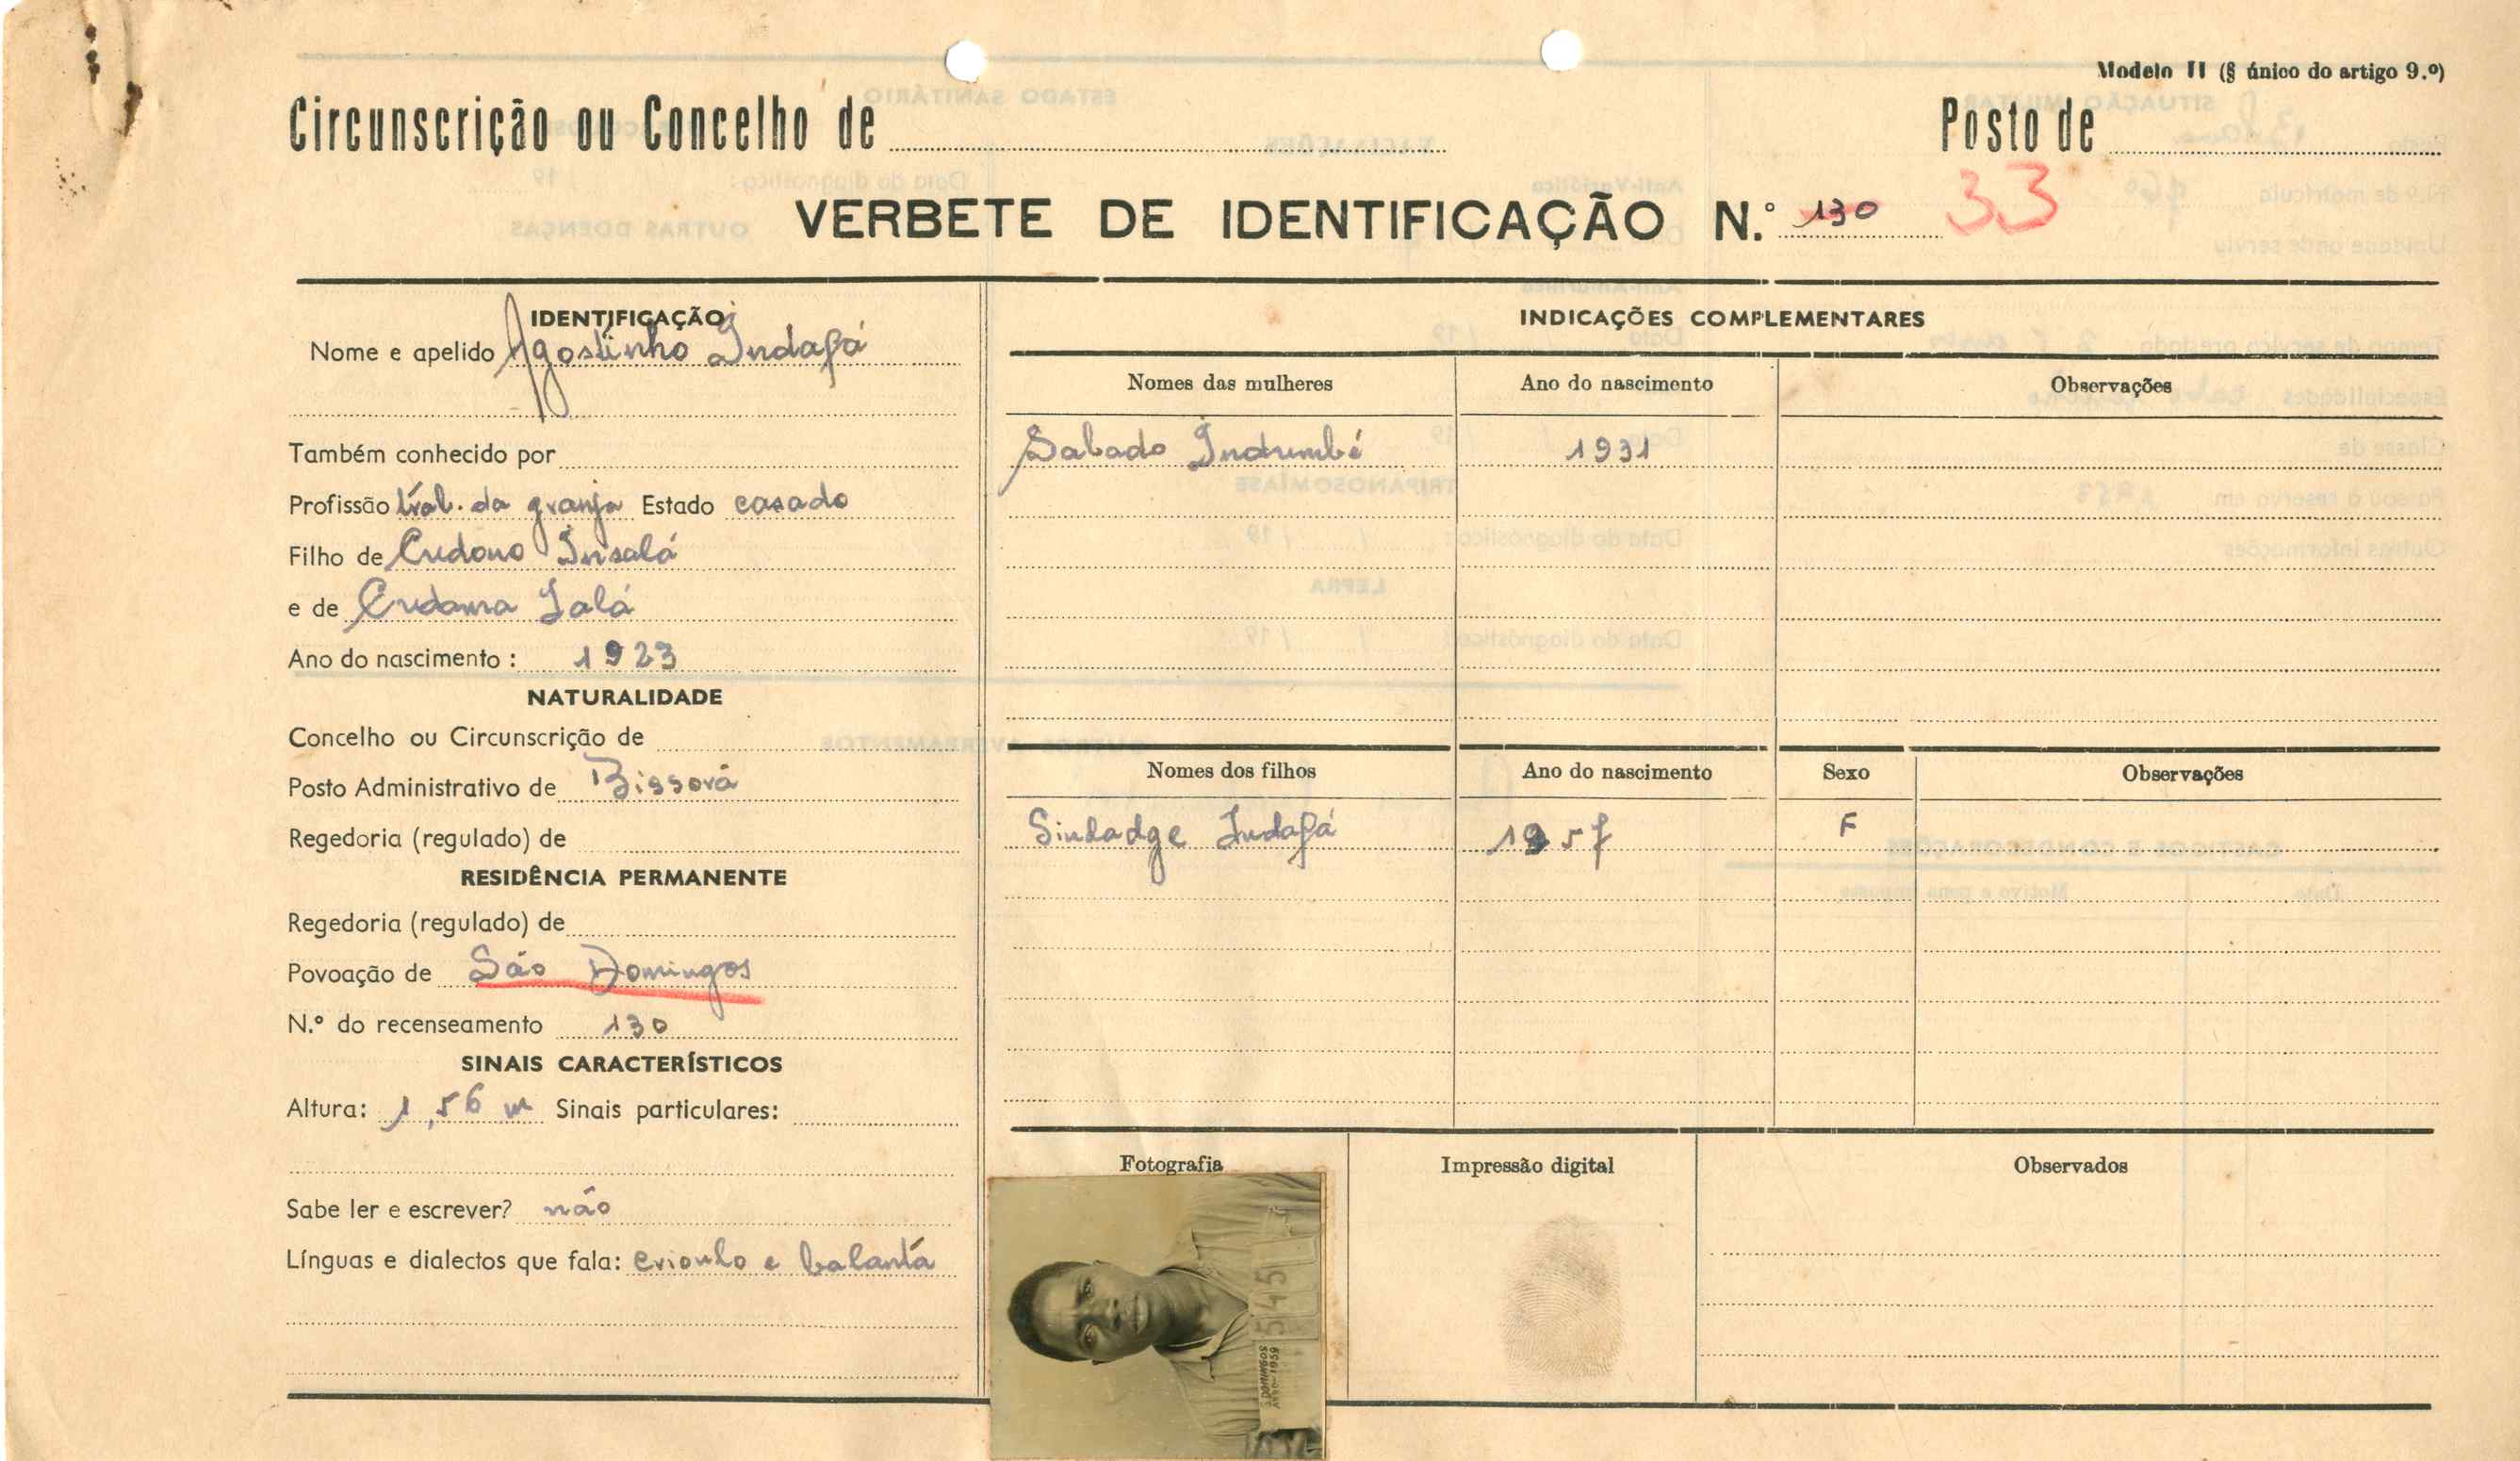 Modelo II (§ único do artigo 9.º)
Circunscrição ou Concelho de
Posto de
VERBETE DE IDENTIFICAÇÃO N.º 130 33
IDENTIFICAÇÃO
Nome e apelido Agostinho Indafá
Também conhecido por
Profissão trab. da granja Estado casado
Filho de Cudono Insalá
e de Cudama Lalá
Ano do nascimento: 1923
NATURALIDADE
Concelho ou Circunscrição de
Posto Administrativo de Bissorá
Regedoria (regulado) de
RESIDÊNCIA PERMANENTE
Regedoria (regulado) de
Povoação de São Domingos
N.º do recenseamento 130
SINAIS CARACTERÍSTICOS
Altura: 1,56 m Sinais particulares:
Sabe ler e escrever? não
Línguas e dialectos que fala: crioulo e balanta
INDICAÇÕES COMPLEMENTARES
Nomes das mulheres Ano do nascimento Observações
Sabado Indumbé 1931
Nomes dos filhos Ano do nascimento Sexo Observações
Sindadge Indafá 1957 F
Fotografia Impressão digital Observados
545
DOMINGOS
1959